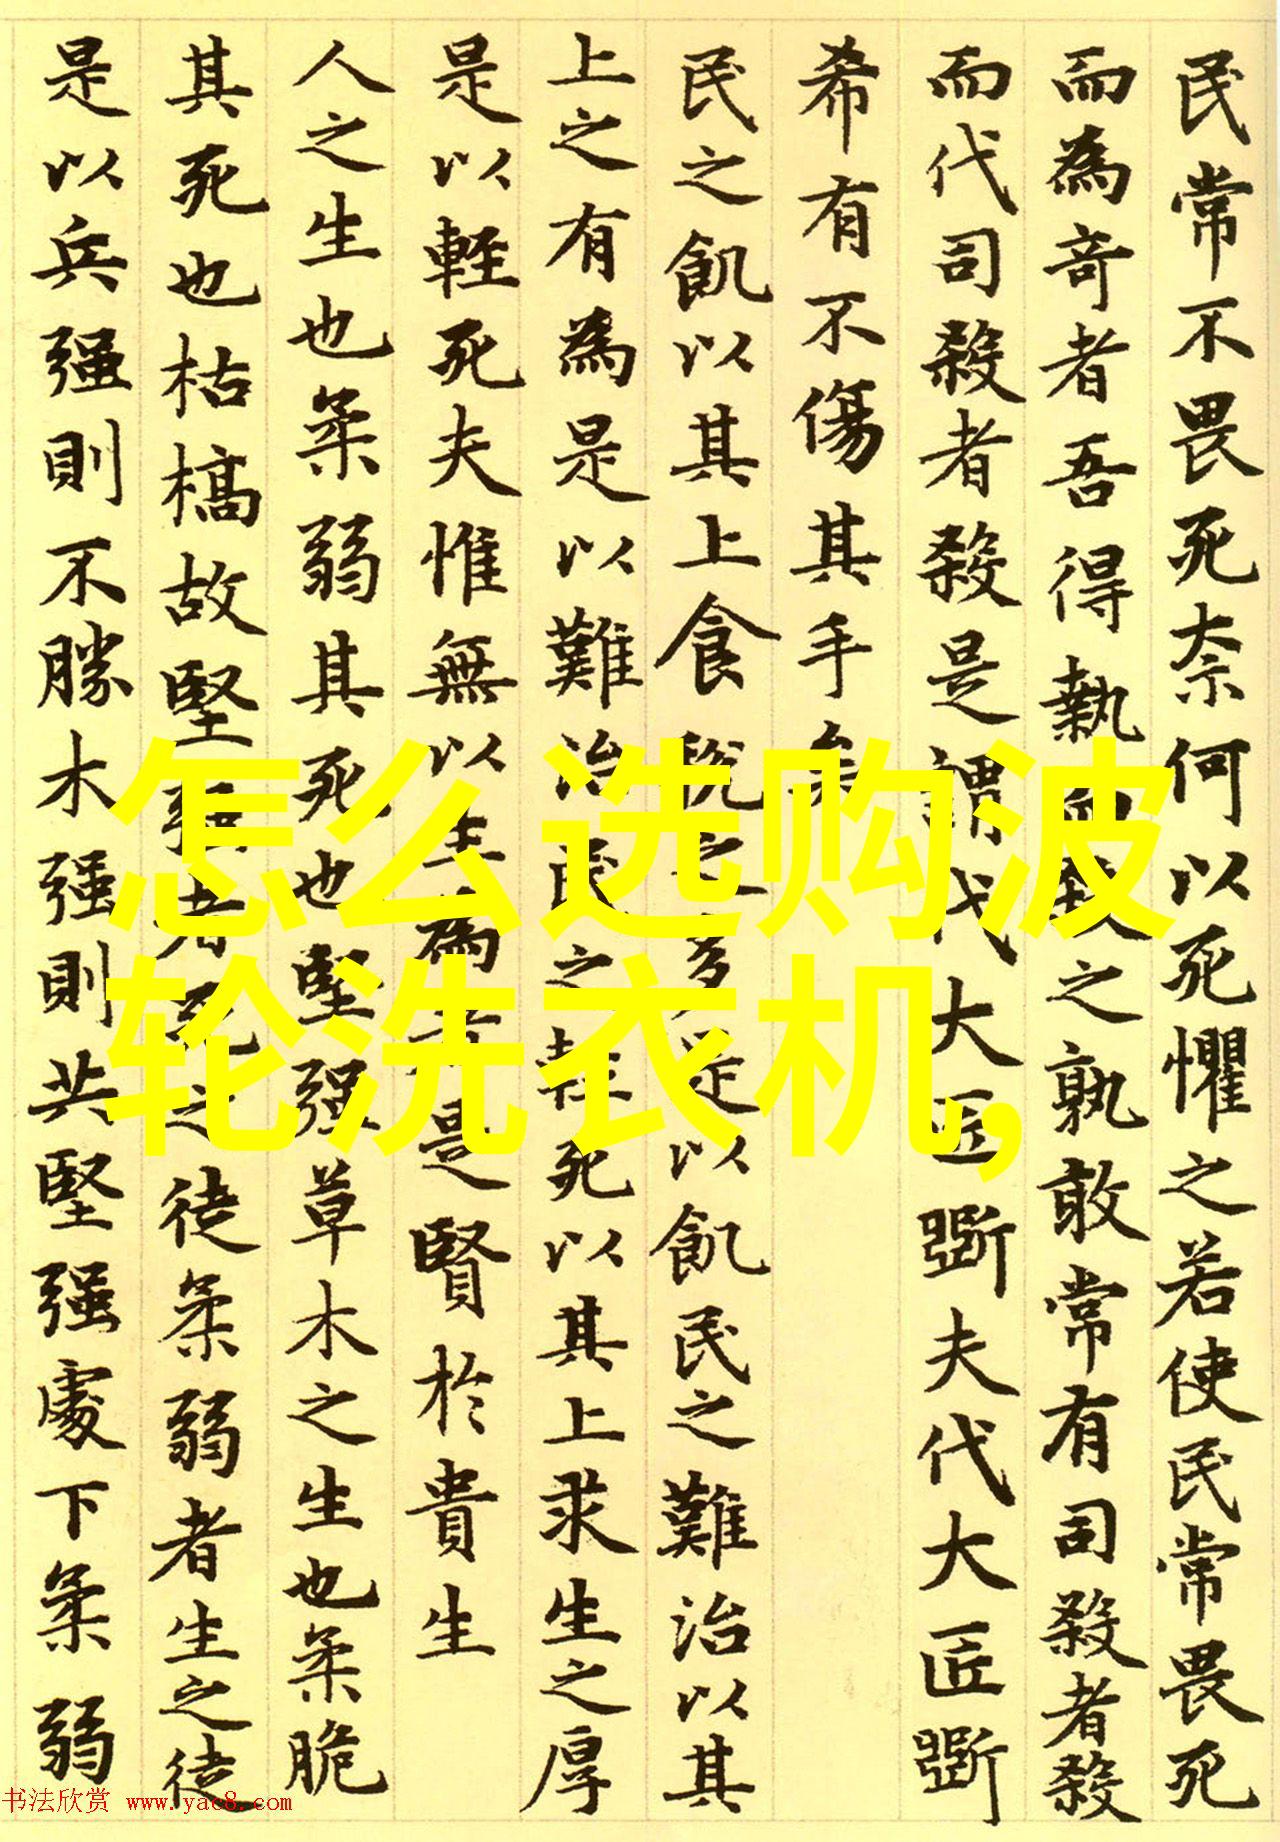 民常不畏死奈何以死懼之若使民常畏死
而為奇者吾得執而殺之孰敢常有司殺者殺
而代司殺者殺是謂代大匠斲夫代大匠斲
希有不傷其手矣
民之飢以其上食稅之多是以飢民之難治以其
上之有為是以難治民之輕死以其上求生之厚
是以輕死夫惟無以生為者是賢於貴生
人之生也柔弱其死也堅强草木之生也柔脆
其死也枯槁故堅强者死之徒柔弱者生之徒
是以兵强則不勝木强則共堅强處下柔弱
怎么选购波
轮洗衣机,
书法欣赏 www.yac8.com